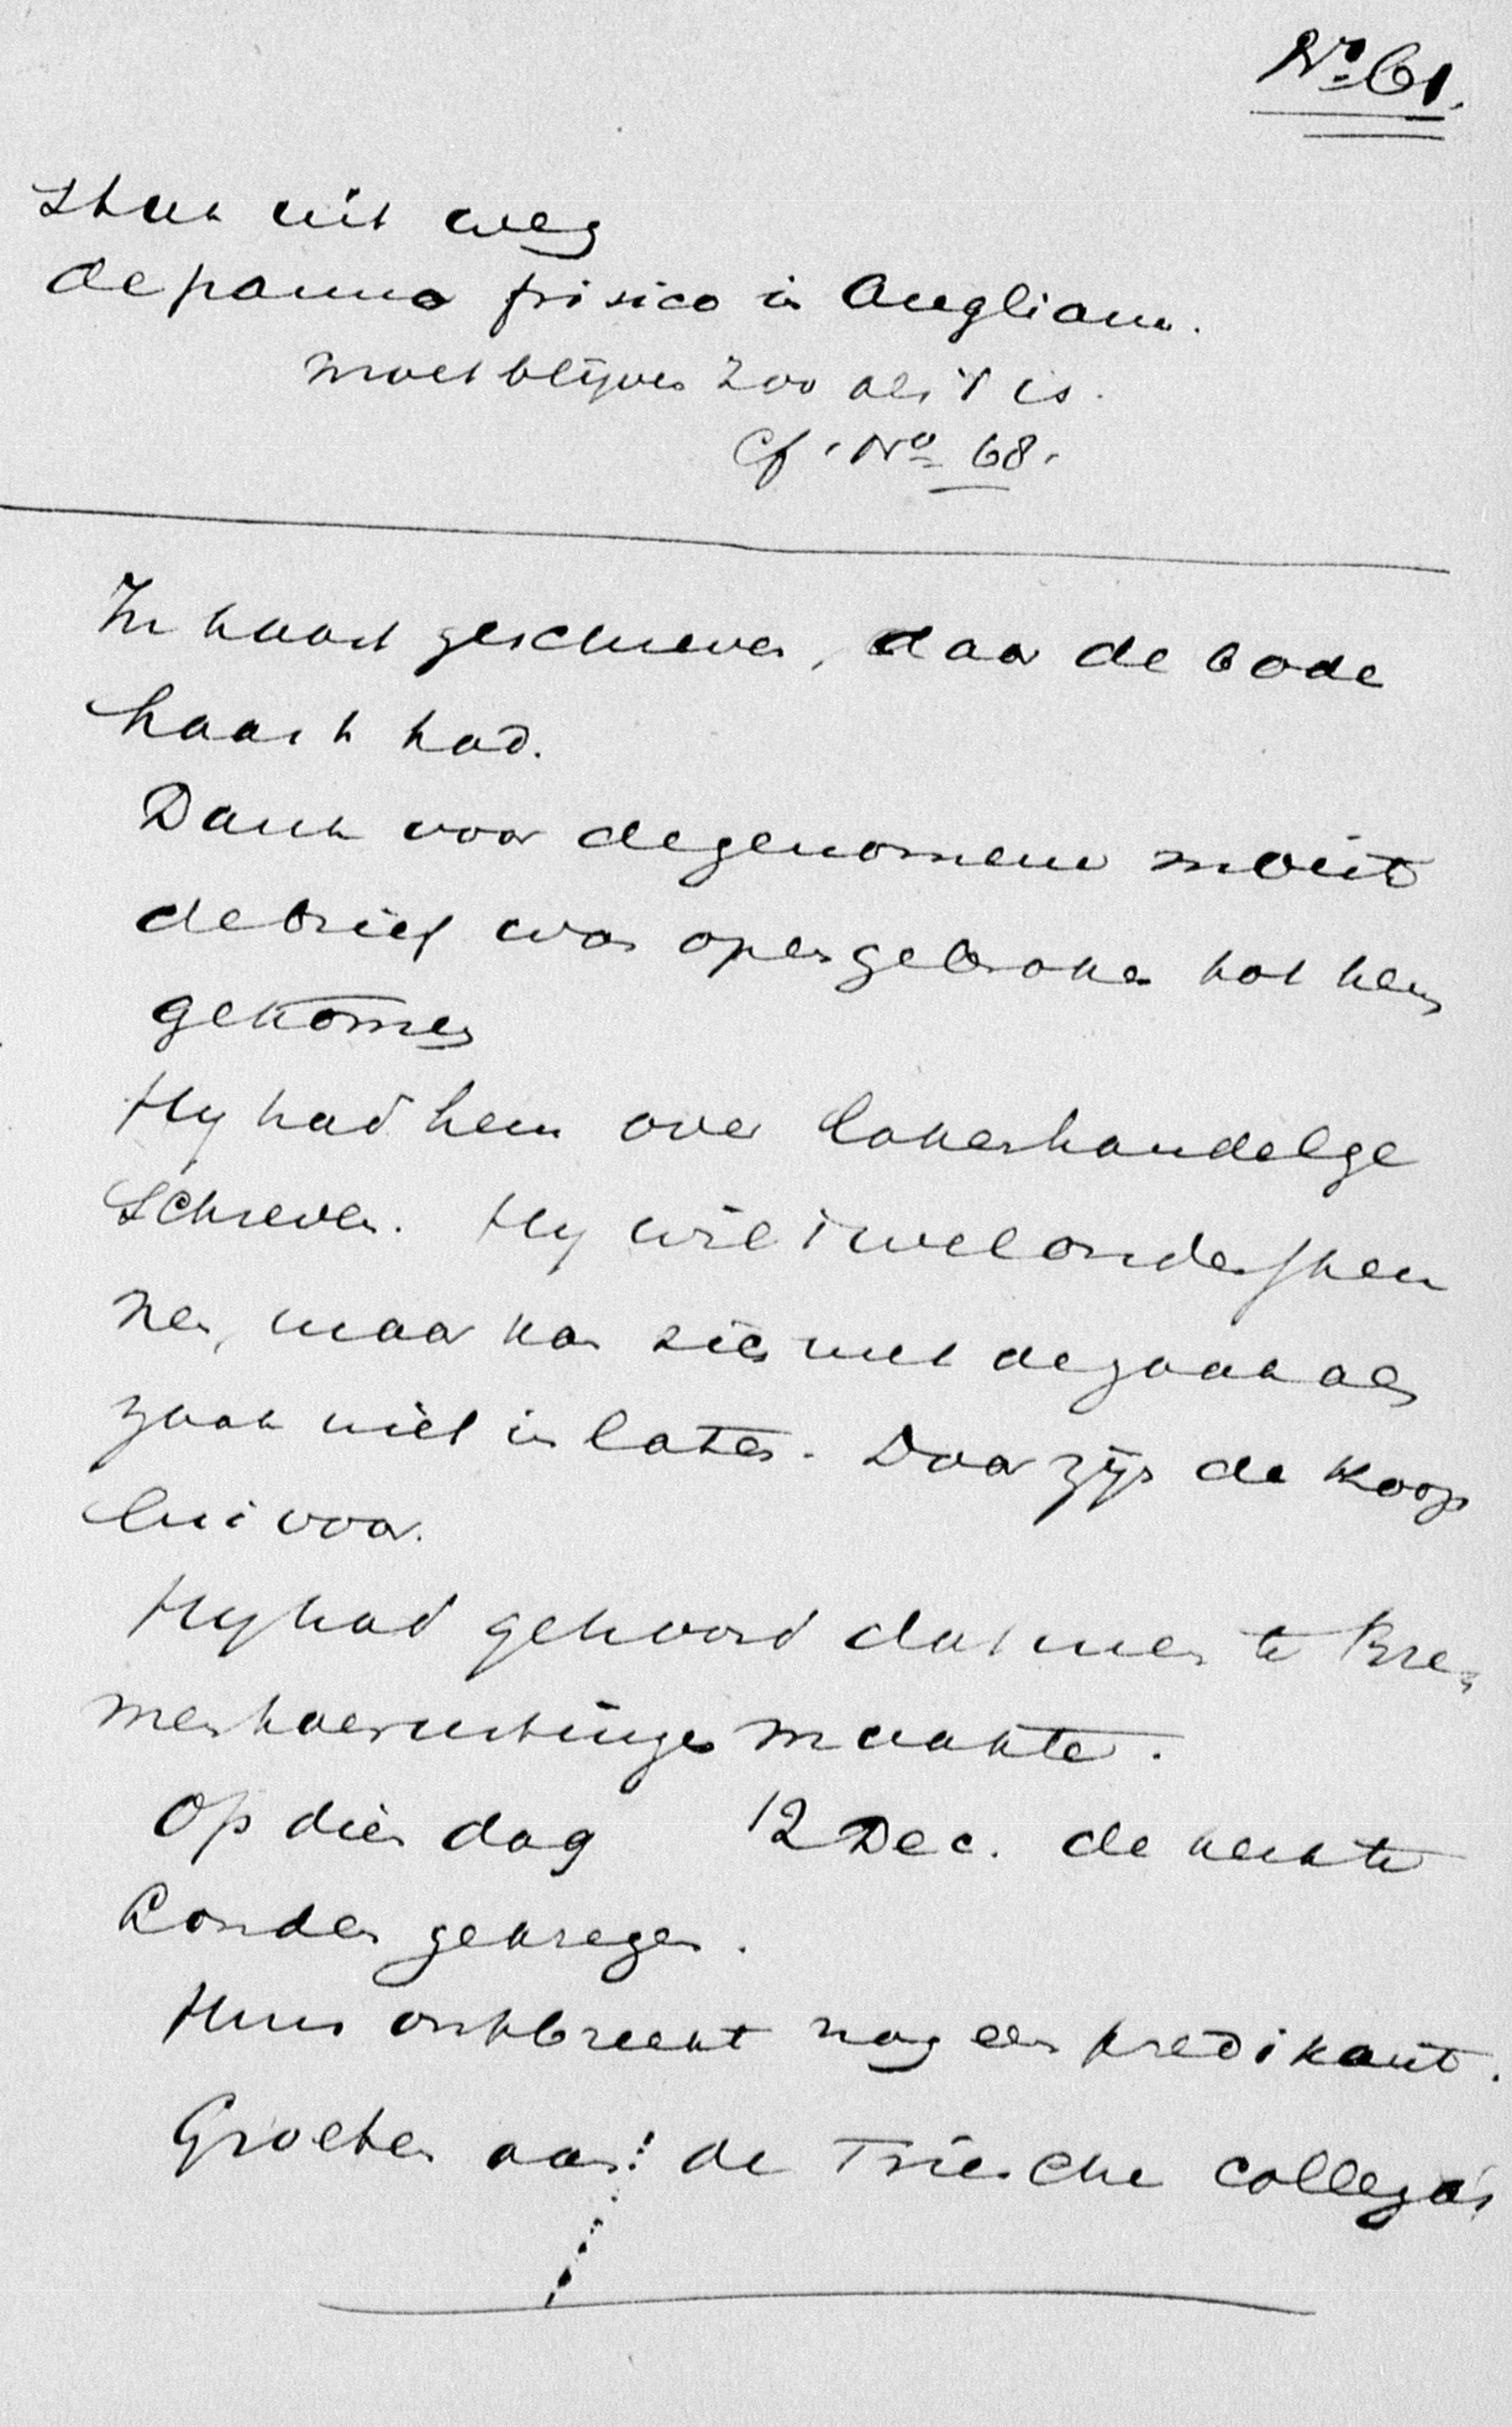 No 61.
Stuk uit weg
de panno frisico in Angliam.
moet blijven zoo als 't is.
Cf. No 68.
In haast geschreven, daar de bode
haast had.
Dank voor de genomene moeite
de brief was opengebroken tot hem
gekomen
Hy had hem over lakenhandel ge
schreven. Hy wil 't wel ondersteu
nen, maar kan zich met de zaak als
zaak niet in laten. Daar zijn de koop
lui voor.
Hy had gehoord dat men te Bre-
men toerustingen maakte.
Op dien dag 12 Dec. de kerk te
Londen gekregen.
Hun ontbreekt nog een predikant.
Groeten aan de Friesche collega's